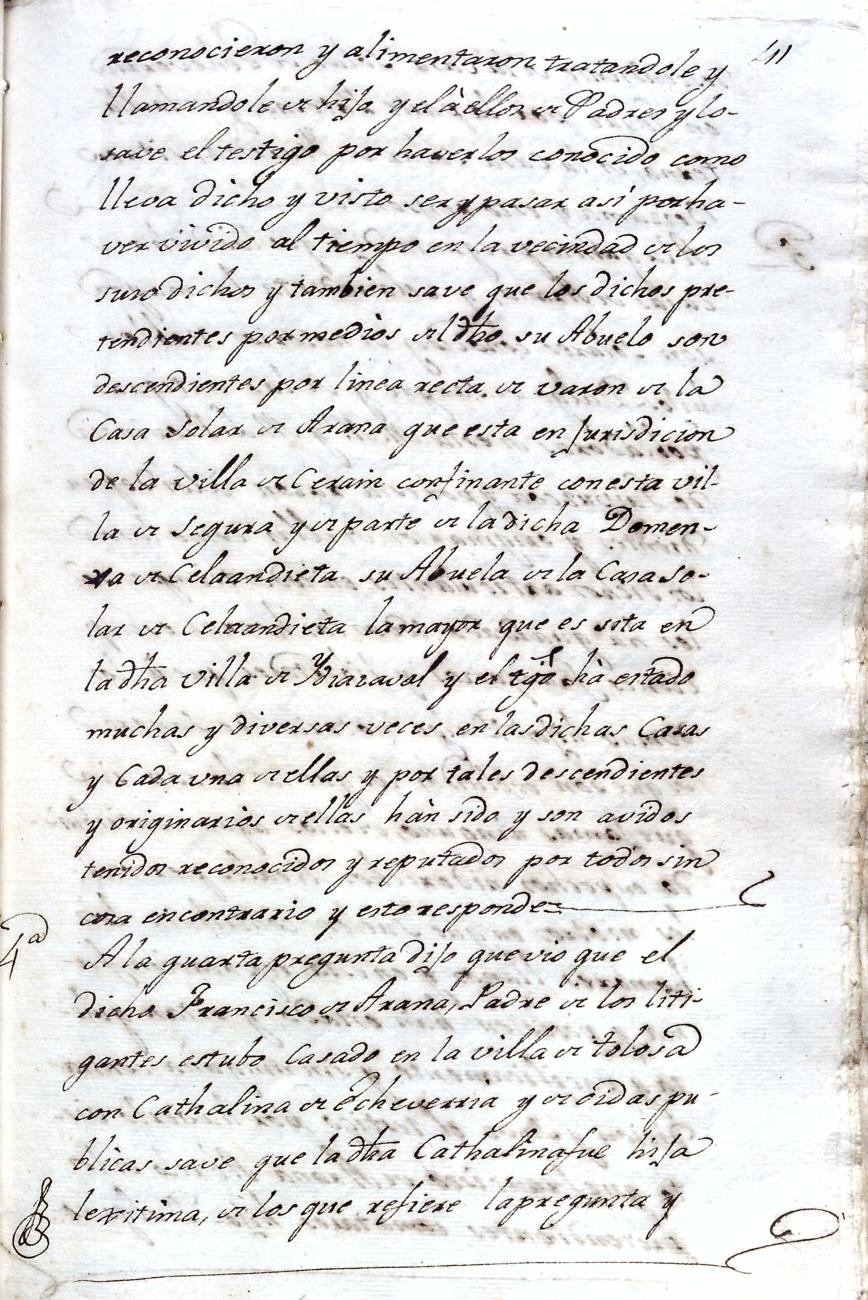 41
reconocieron y alimentaron tratandole y
llamandole de hijo y el à ellos de Padres y lo-
save el testigo por haverlos conocido como
lleva dicho y visto ser y pasar asi por ha-
ver vivido al tiempo en la vecindad de los
suso dichos y tambien save que los dichos pre-
tendientes por medios del dho su Abuelo son
descendientes por linea recta de varon de la
Casa Solar de Arana que esta en Jurisdicion
de la villa de Cerain confinante con esta vil-
la de Segura y de parte de la dicha Domen-
xa de Celaandieta su Abuela de la Casa so-
lar de Celaandieta la mayor que es sita en
la dha villa de Ydiazaval y el tgo hà estado
muchas y diversas veces en las dichas Casas
y Cada una de ellas y por tales descendientes
y originarios de ellas hàn sido y son avidos
tenidos reconocidos y reputados por todos sin
cosa en contrario y esto responde=
4ª
A la quarta pregunta dijo que vio que el
dicho Francisco de Arana, Padre de los liti-
gantes estubo Casado en la villa de tolosa
con Cathalina de Echeverria y de oidas pu-
blicas save que la dha Cathalina fue hija
lexitima, de los que refiere la pregunta y